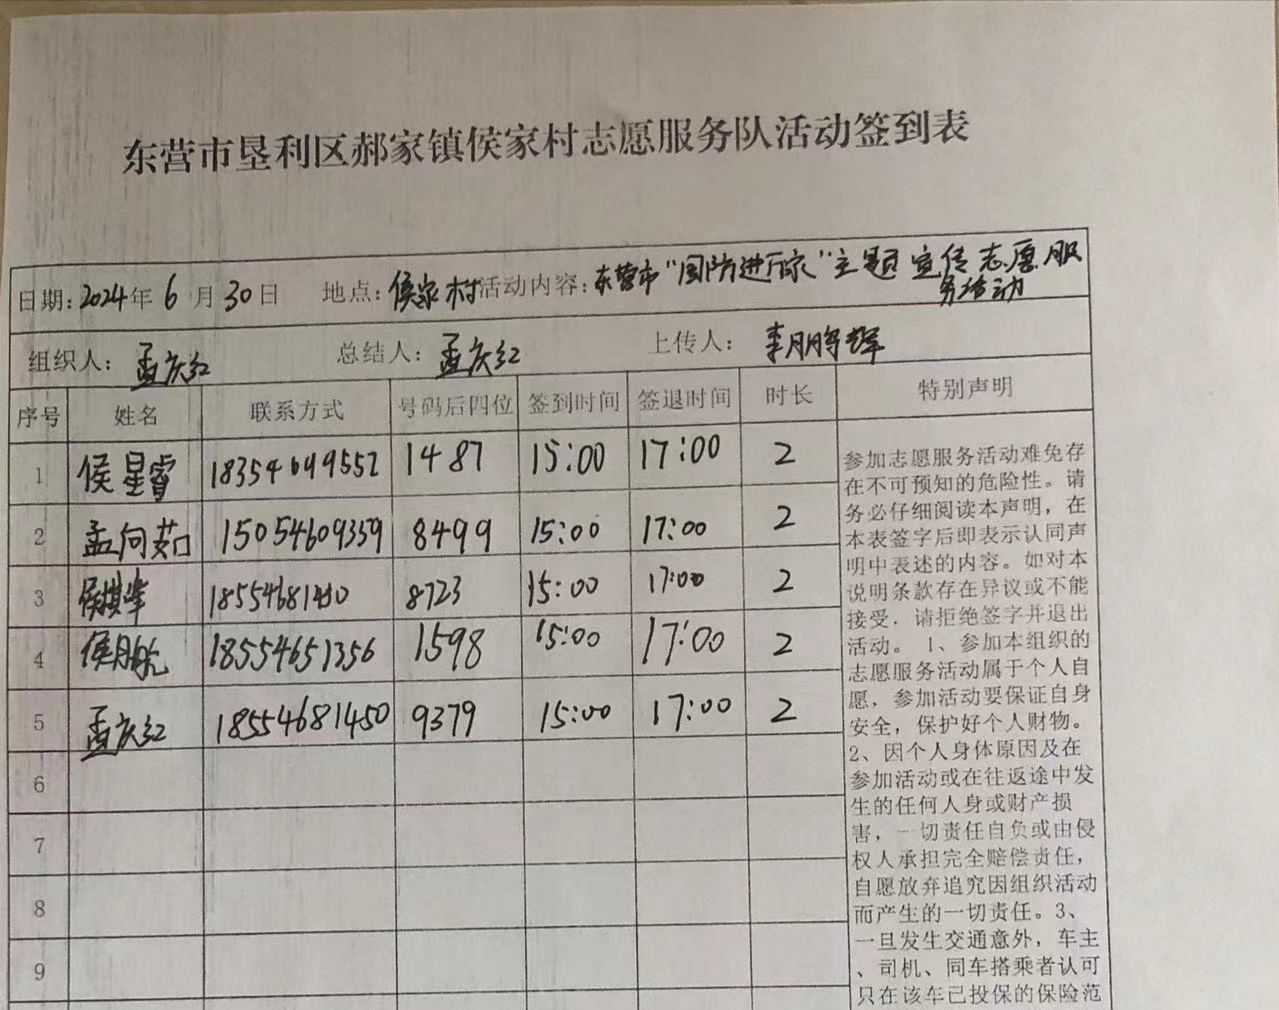 东营市垦利区郝家镇侯家村志愿服务队活动签到表
日期:2024年 6 月 30 日 地点:侯家村 活动内容:东营市"国防进万家"主题宣传志愿服
务活动
组织人:孟庆红 总结人:孟庆红 上传人:李鹏辉
序号 姓名 联系方式 号码后四位 签到时间 签退时间 时长 特别声明
1 侯星睿 18354699552 1487 15:00 17:00 2
2 孟向茹 15054609359 8499 15:00 17:00 2
3 8723 15:00 17:00 2
4 侯月航 18554651356 1598 15:00 17:00 2
5 孟庆红 18554681450 9379 15:00 17:00 2
6
7
8
9
参加志愿服务活动难免存
在不可预知的危险性。请
务必仔细阅读本声明，在
本表签字后即表示认同声
明中表述的内容。如对本
说明条款存在异议或不能
接受，请拒绝签字并退出
活动。 1、参加本组织的
志愿服务活动属于个人自
愿，参加活动要保证自身
安全，保护好个人财物。
2、因个人身体原因及在
参加活动或在往返途中发
生的任何人身或财产损
害，一切责任自负或由侵
权人承担完全赔偿责任，
自愿放弃追究因组织活动
而产生的一切责任。3、
一旦发生交通意外，车主
、司机、同车搭乘者认可
只在该车已投保的保险范